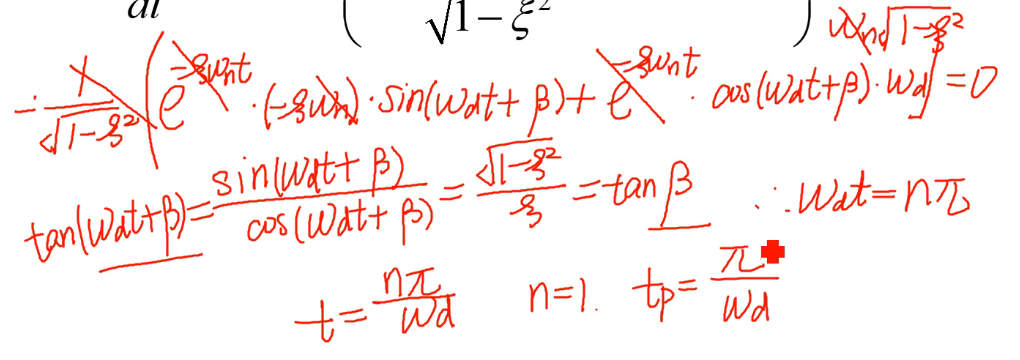 dt ( √1-ξ² )
-1/√(1-ξ²) (e^(-ξωnt)·(-ξωn)·sin(ωdt+β)+e^(-ξωnt)·cos(ωdt+β)·ωd)=0 ωn√(1-ξ²)
tan(ωdt+β)=sin(ωdt+β)/cos(ωdt+β)=√(1-ξ²)/ξ=tanβ ∴ωdt=nπ
t=nπ/ωd n=1. tp=π/ωd